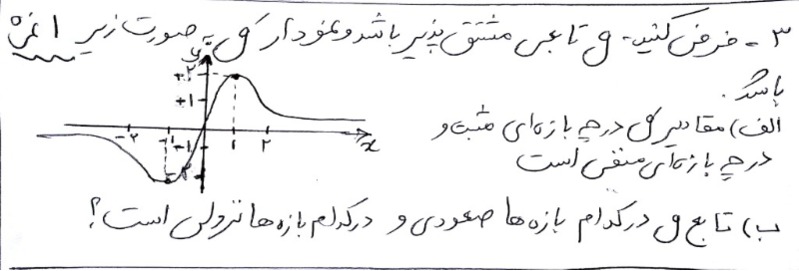 ۳ - فرض کنید f تابعی مشتق پذیر باشد و نمودار f به صورت زیر ۱ نمره
باشد.
الف) مقادیر f در چه بازه‌ای مثبت و
در چه بازه‌ای منفی است
ب) تابع f در کدام بازه‌ها صعودی و در کدام بازه‌ها نزولی است؟
y
+۲
+۱
-۲ -۱ ۱ ۲ x
-۱
-۲